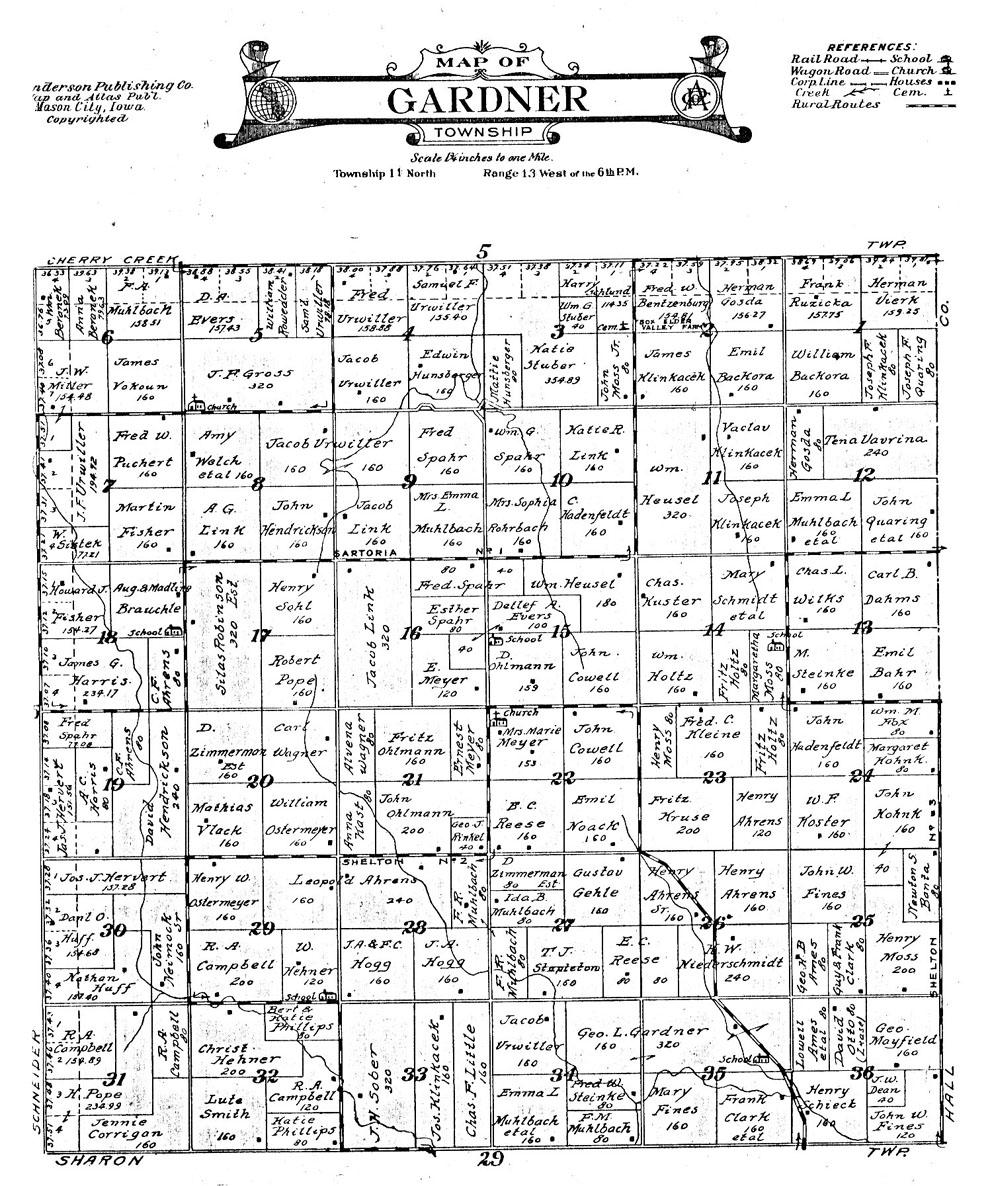 MAP OF
GARDNER
TOWNSHIP
Scale 1¾ inches to one Mile.
Township 11 North Range 13 West of the 6th P.M.
nderson Publishing Co.
ap and Atlas Publ.
Mason City, Iowa.
Copyrighted
REFERENCES:
Rail Road School
Wagon Road Church
Corp Line Houses
Creek Cem.
Rural Routes
5
CHERRY CREEK TWP.
F.A. Muhlbach 158.51
D.A. Evers 157.43
William Powedder
Sam'd Urwiller
Fred Urwiller 158.58
Samuel F. Urwiller 155.40
Harry
Wm. G. Stuber 40
Cem.
Fred W. Bentzenburg 154.81
BOX ELDER VALLEY FARM
Herman Gosda 156.27
Frank Ruzicka 157.75
Herman Vierk 159.25
CO.
Anna Beronek
6 5 4 3 2 1
J.W. Miller 154.48
James Vokoun 160
J.F. Gross 320
Church
Jacob Urwiller 160
Edwin Hunsberger 160
Mattie Hunsberger
Katie Stuber 354.89
John Moss Jr. 80
James Klinkacek 160
Emil Backora 160
William Backora 160
Joseph F. Klinkacek 80
Joseph F. Quaring 80
J.F. Urwiller 194.92
Fred W. Puchert 160
Amy Welch etal 160
Jacob Urwiller 160 160
Fred Spahr 160
Wm. G. Spahr 160
Katie R. Link 160
Wm. Heusel 320
Vaclav Klinkacek 160
Herman Gosda 80
Tena Vavrina 240
7 8 9 10 11 12
W. Sintek 77.21
Martin Fisher 160
A.G. Link 160
John Hendrickson 160
Jacob Link 160
Mrs. Emma L. Muhlbach 160
Mrs. Sophia Rohrbach 160
C. Hadenfeldt 160
Joseph Klinkacek 160
Emma L Muhlbach 160 etal
John Quaring etal 160
SARTORIA Nº 1
Howard J. Fisher 154.27
Aug. & Madling Brauchle
School
Silas Robinson Est 320
Henry Sohl 160
Jacob Link 320
80
Fred. Spahr
40
Wm. Heusel 180
Esther Spahr 80
Dallef A. Evers 100
Chas. Kuster 160
Mary Schmidt etal
Chas. L. Wilks 160
Carl B. Dahms 160
18 17 16 15 14 13
James G. Harris 234.17
C.F. Ahrens 80
Robert Pope 160
40
E. Meyer 120
School
D. Ohlmann 159
John Cowell 160
Wm. Holtz 160
Fritz Holtz 80
Margaretha Moss 80
School
M. Steinke 160
Emil Bahr 160
Fred Spahr 77.08
C.F. Ahrens 80
David Hendrickson 240
D. Zimmerman Est 160
Carl Wagner 160
Alvena Wagner 80
Fritz Ohlmann 160
Ernest Meyer 80
Church
Mrs. Marie Meyer 153
John Cowell 160
Henry Moss 80
Fred. C. Kleine 160
Fritz Holtz 80
John Hadenfeldt 160
Wm. M. Fox 80
Margaret Kohnk 80
19 20 21 22 23 24
Jos. J. Hervert 151.56
A.C. Harris 80
Mathias Vlack 160
William Ostermeyer 160
Anna Hast 80
John Ohlmann 200
Geo. J. Kinkel 40
B.C. Reese 160
Emil Noack 160
Fritz Kruse 200
Henry Ahrens 120
W.F. Koster 160
John Kohnk 160
Nº 3
SHELTON Nº 2
Jos. J. Hervert 157.28
Henry W. Ostermeyer 160
Leopold Ahrens 160 240
F.R. Muhlbach 80
D Zimmerman 80 Est
Ida B. Muhlbach 80
Gustav Gehle 160
Henry Ahrens Sr. 160
Henry Ahrens 160
John W. Fines 160
40
Newton S. Bonta 80
30 29 28 27 26 25
Danl O. Huff 154.68
Nathan Huff 157.40
John Neimack Sr 160
R.A. Campbell 200
W. Hehner 120
School
J.A. & F.C. Hogg 160
J.A. Hogg 160
F.R. Muhlbach 80
T.J. Stapleton 160
E.C. Reese 80 80
H.W. Niederschmidt 240
Geo. H B Ames 80
Guy & Frank Clark 80
Henry Moss 200
SHELTON
R.A. Campbell 154.89
R.A. Campbell 80
Christ Hehner 200
Bert & Katie Phillips 80
J.H. Sober 320
Jos. Klinkacek 160
Chas. F. Little 160
Jacob Urwiller 160
Geo. L. Gardner 160 320
School
Lowell Ames etal 80
David Otto 80
Geo. Mayfield 160
31 32 33 34 35 36
H. Pope 234.99
Jennie Corrigan 160
Lute Smith 160
R.A. Campbell 120
Katie Phillips 80
Emma L Muhlbach etal 160
Fred W. Steinke 80
F.M. Muhlbach 80
Mary Fines 160
Frank Clark 160 etal
Henry Schieck 160
J.W. Dean 40
John W. Fines 120
SCHNEIDER
HALL
SHARON 29 TWP.